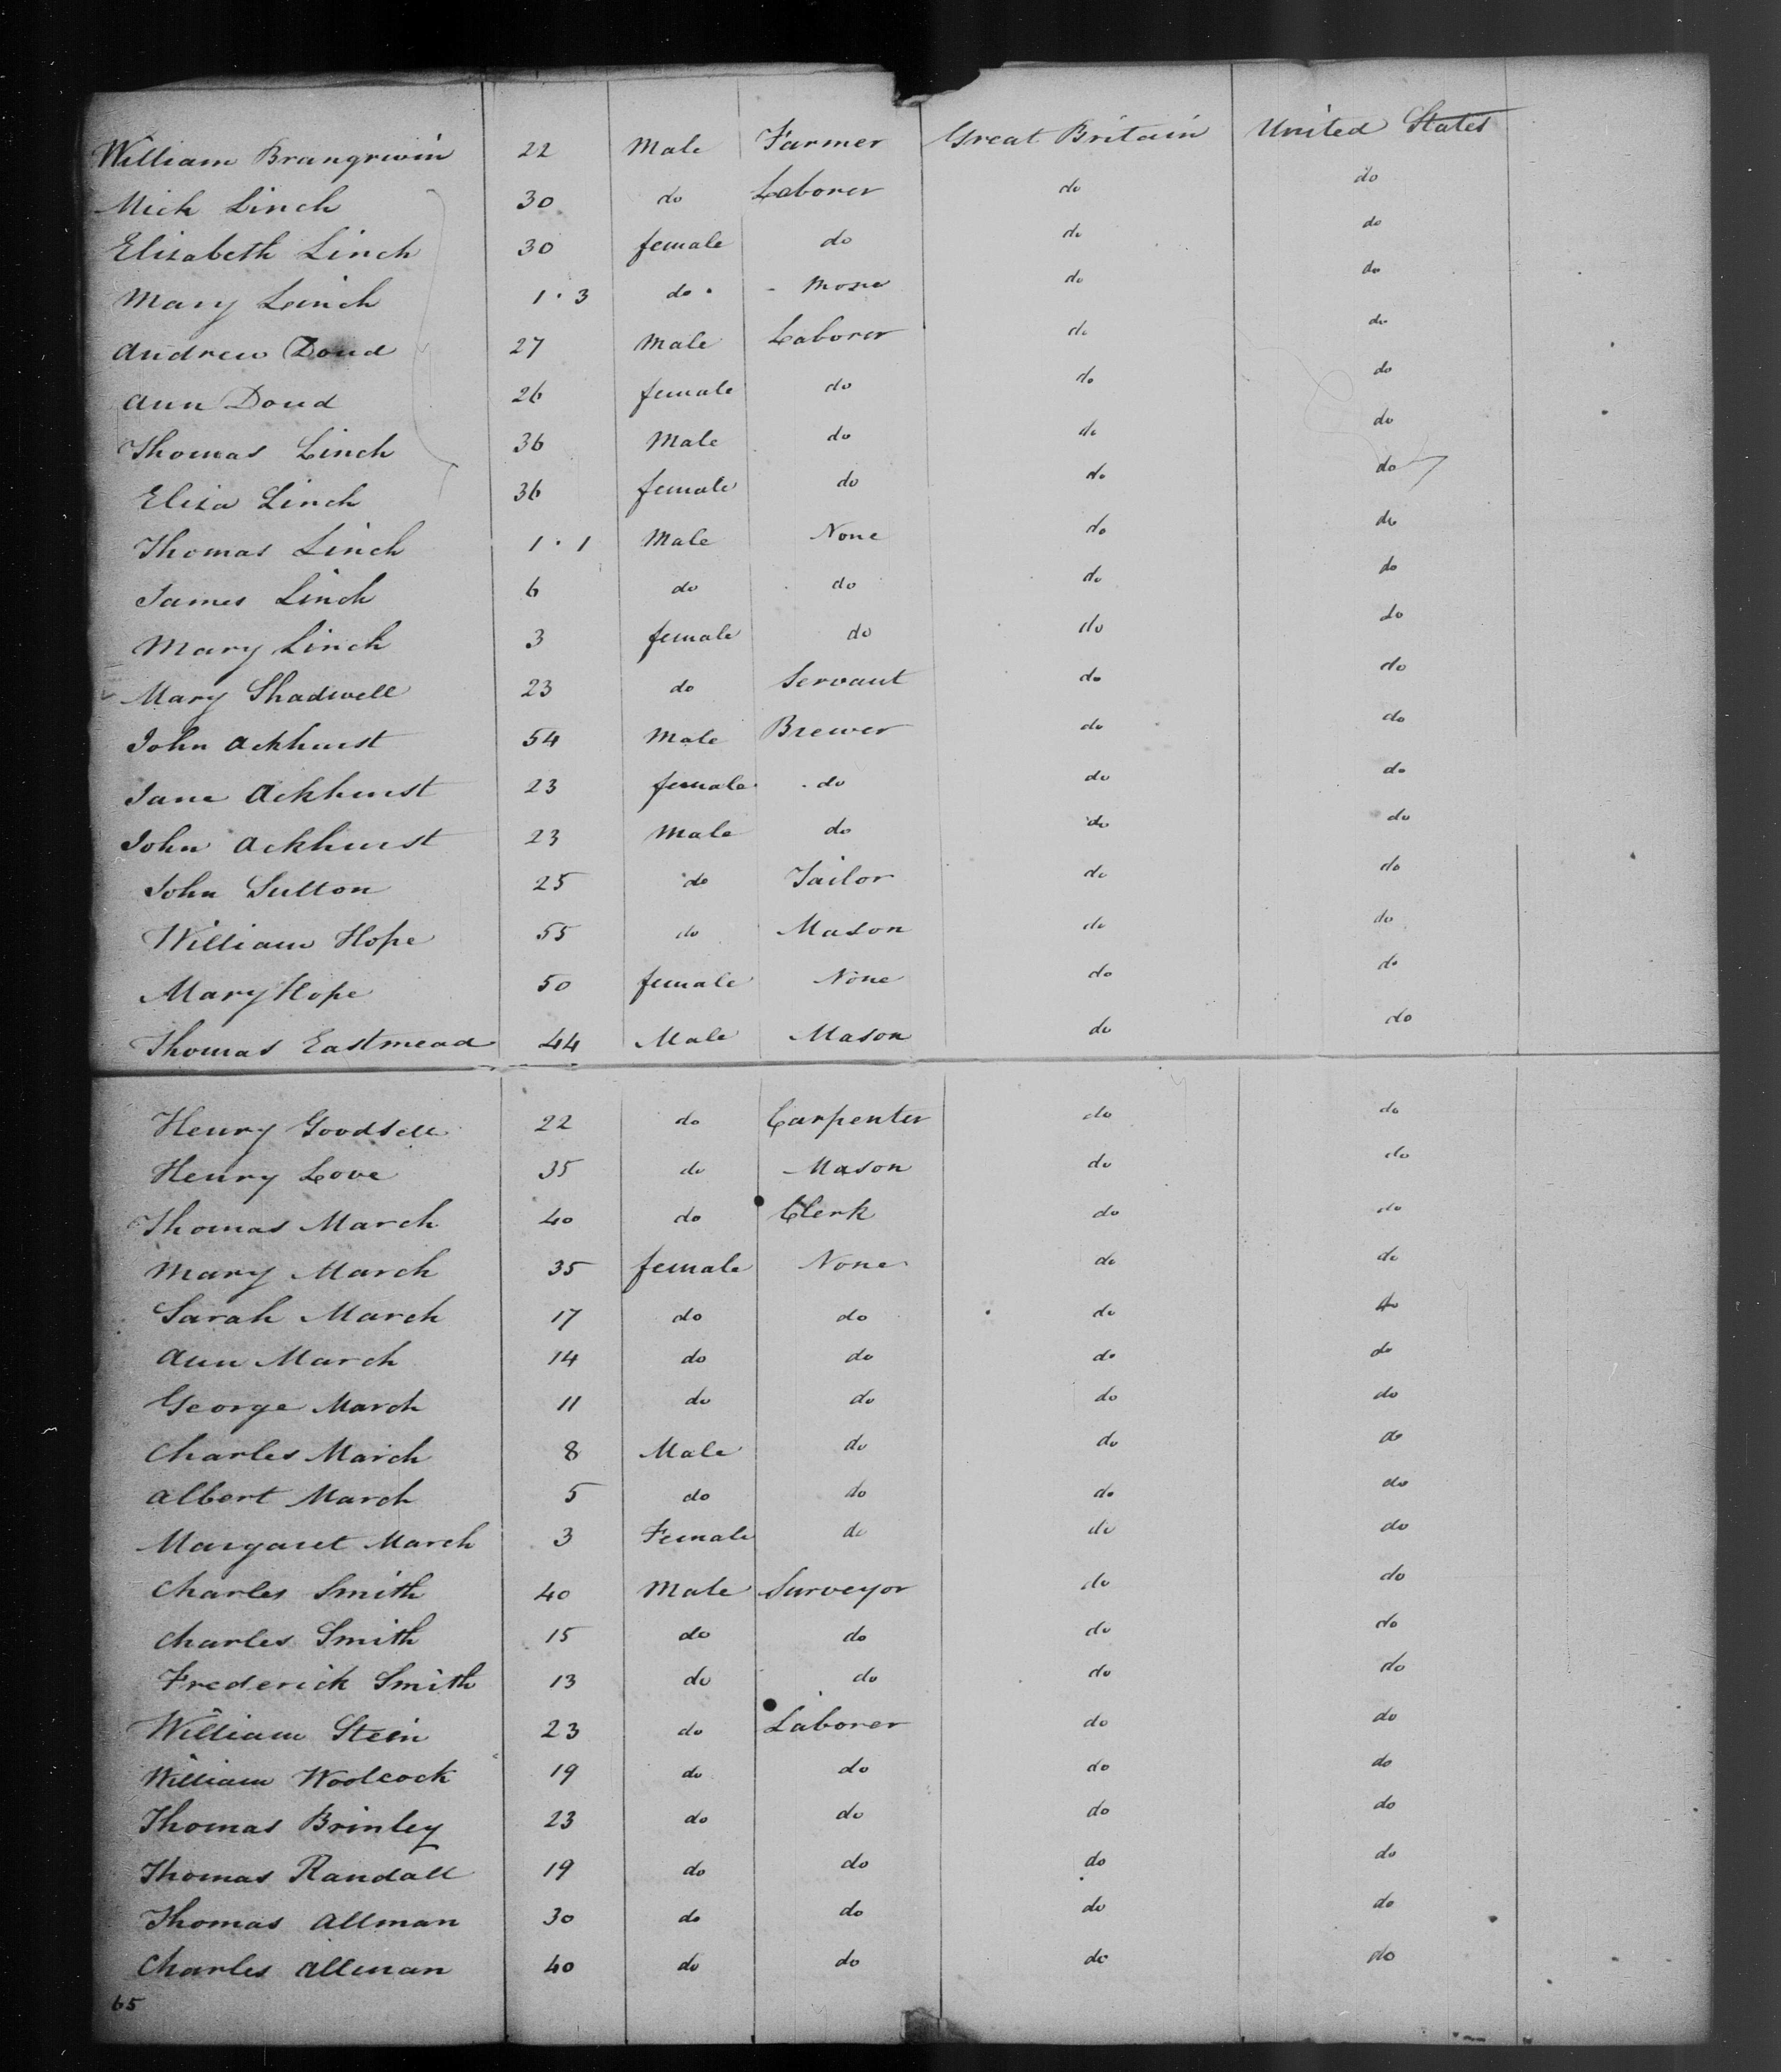 William Brangwin 22 Male Farmer Great Britain United States
Mich Linch 30 do Laborer do do
Elizabeth Linch 30 female do do do
Mary Linch 1 . 3 do - None do do
Andrew Doud 27 Male Laborer do do
Ann Doud 26 female do do do
Thomas Linch 36 Male do do do
Eliza Linch 36 female do do do
Thomas Linch 1 . 1 Male None do do
James Linch 6 do do do do
Mary Linch 3 female do do do
Mary Shadwell 23 do Servant do do
John Ackhurst 54 Male Brewer do do
Jane Ackhurst 23 female do do do
John Ackhurst 23 Male do do do
John Sutton 25 do Tailor do do
William Hope 55 do Mason do do
Mary Hope 50 female None do do
Thomas Eastmead 44 Male Mason do do
Henry Goodsell 22 do Carpenter do do
Henry Love 35 do Mason do do
Thomas March 40 do Clerk do do
Mary March 35 female None do do
Sarah March 17 do do do do
Ann March 14 do do do do
George March 11 do do do do
Charles March 8 Male do do do
Albert March 5 do do do do
Margaret March 3 Female do do do
Charles Smith 40 Male Surveyor do do
Charles Smith 15 do do do do
Frederick Smith 13 do do do do
William Stein 23 do Laborer do do
William Woolcock 19 do do do do
Thomas Brinley 23 do do do do
Thomas Randall 19 do do do do
Thomas Allman 30 do do do do
Charles Allman 40 do do do do
65